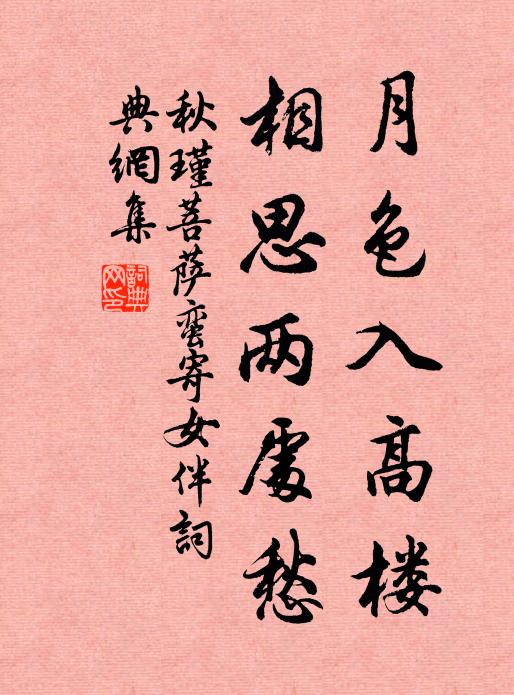 月色入高楼
相思两處愁
秋瑾菩萨蛮寄女伴詞
典網集
詞典网印